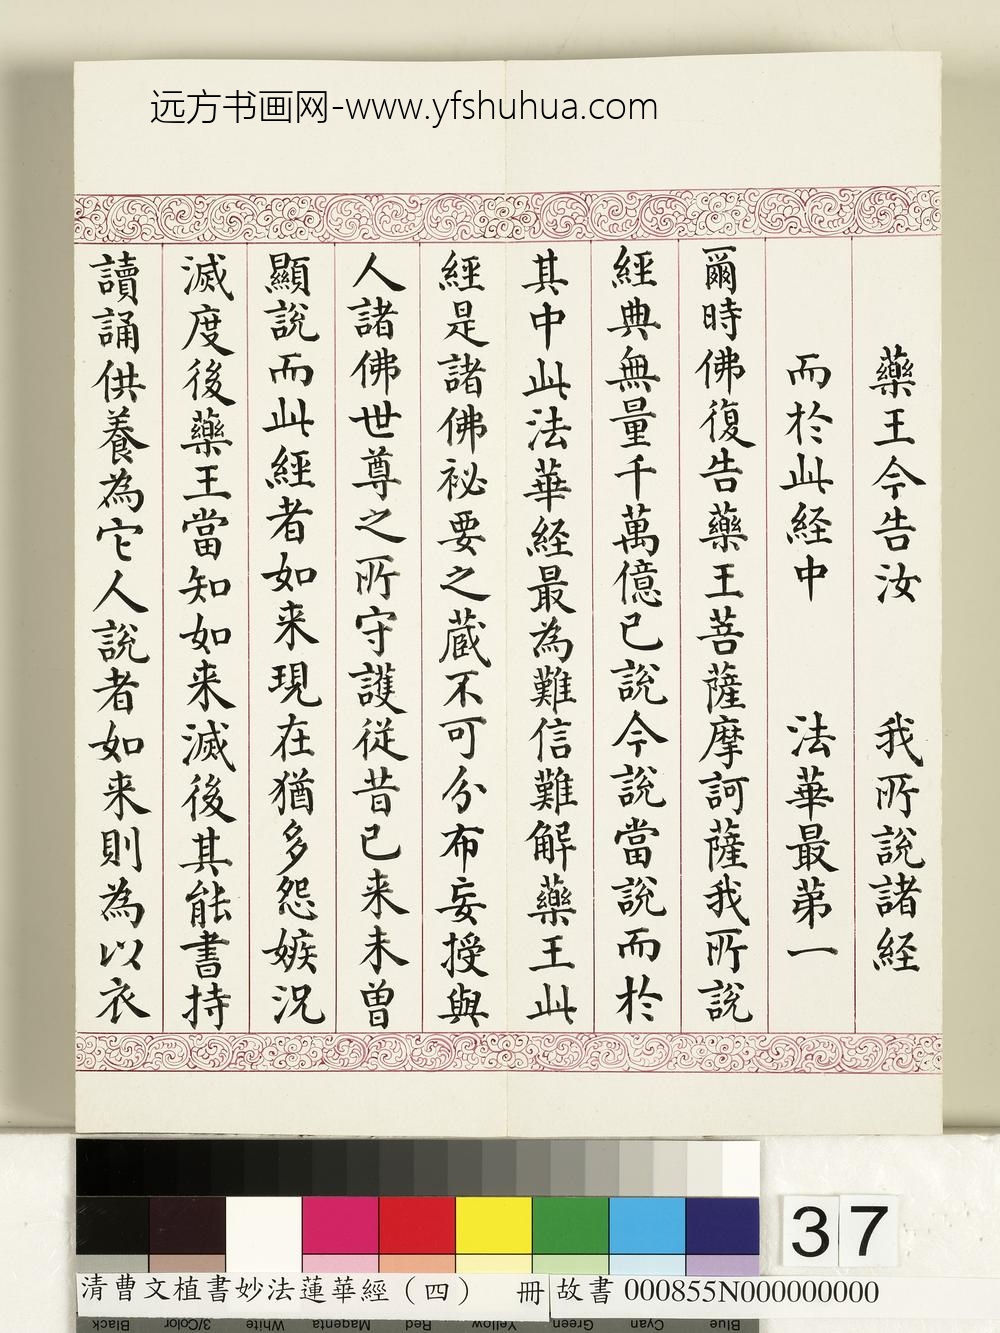 远方书画网-www.yfshuhua.com
藥王今告汝　我所說諸経
而於此経中　法華最第一
爾時佛復告藥王菩薩摩訶薩我所說
經典無量千萬億已說今說當說而於
其中此法華経最為難信難解藥王此
經是諸佛祕要之蔵不可分布妄授與
人諸佛世尊之所守護従昔已来未曽
顯說而此經者如来現在猶多怨嫉況
滅度後藥王當知如来滅後其能書持
讀誦供養為它人說者如来則為以衣
37
清曹文植書妙法蓮華經（四） 冊
故書 000855N000000000
Black 3/Color White Magenta Red Yellow Green Cyan Blue